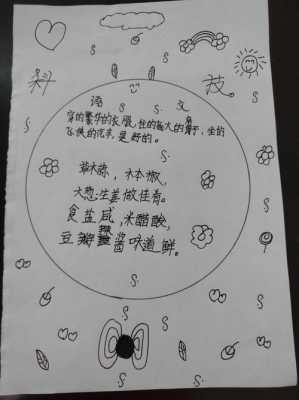 科 技
语 文
穿的繁华的衣服，住的极大的房子，坐的
飞快的汽车，是好的。
草木麻，木本椒，
大葱生姜做佳肴。
食盐咸，米醋酸，
豆瓣辣酱味道鲜。